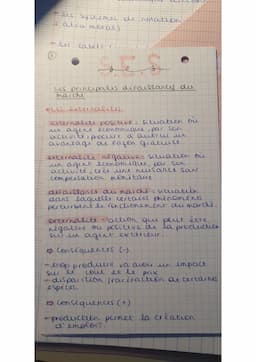 - les systèmes de notation
- aléa moral
- les labels :
①
S.E.S
Les principales défaillances du
marché
Les externalités
externalité positive : situation où
un agent économique, par son
activité, procure à autrui un
avantage de façon gratuite
externalité négative : situation où
un agent économique, par son
activité, crée une nuisance sans
compensation monétaire
défaillances du marché : situation
dans laquelle certains phénomènes
perturbent le fonctionnement du marché.
externalité : action qui peut être
négative ou positive de la production
sur un agent extérieur.
⇨ Conséquences (-)
- trop produire va avoir un impact
sur le coût et le prix
- disparition / raréfaction de certaines
espèces
⇨ Conséquences (+)
- production permet la création
d'emploi.